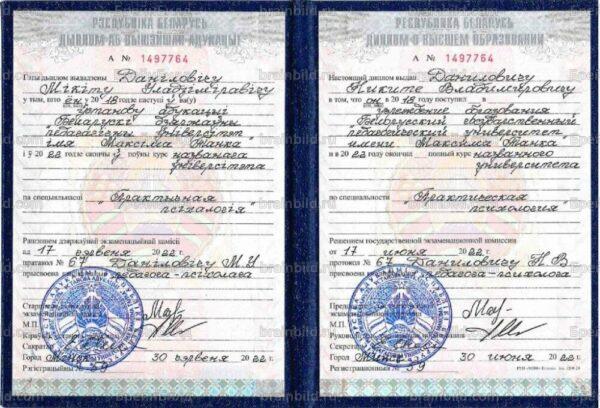 РЭСПУБЛІКА БЕЛАРУСЬ
ДЫПЛОМ АБ ВЫШЭЙШАЙ АДУКАЦЫІ
А № 1497764
Гэты дыплом выдадзены Даніловічу
Мікіту Уладзіміравічу
у тым, што ён у 2018 годзе заступіў у
установу адукацыі
"Беларускі дзяржаўны
педагагічны ўніверсітэт
імя Максіма Танка
і ў 2022 годзе скончыў поўны курс названага
ўніверсітэта
па спецыяльнасці "Практычная
псіхалогія"
Рашэннем дзяржаўнай экзаменацыйнай камісіі
ад 17 чэрвеня 2022 г.
пратакол № 67 Даніловічу М.У.
прысвоена педагога-псіхолага
М.П.
Горад Мінск 30 чэрвеня 2022 г.
Рэгістрацыйны № 59
РЕСПУБЛИКА БЕЛАРУСЬ
ДИПЛОМ О ВЫСШЕМ ОБРАЗОВАНИИ
А № 1497764
Настоящий диплом выдан Даниловичу
Никите Владимировичу
в том, что он в 2018 году поступил в
учреждение образования
"Белорусский государственный
педагогический университет
имени Максима Танка
и в 2022 году окончил полный курс названного
университета
по специальности "Практическая
психология"
Решением государственной экзаменационной комиссии
от 17 июня 2022 г.
протокол № 67 Даниловичу Н.В
присвоена педагога-психолога
М.П.
Город Минск 30 июня 2022 г.
Регистрационный № 59
brainbild.ru